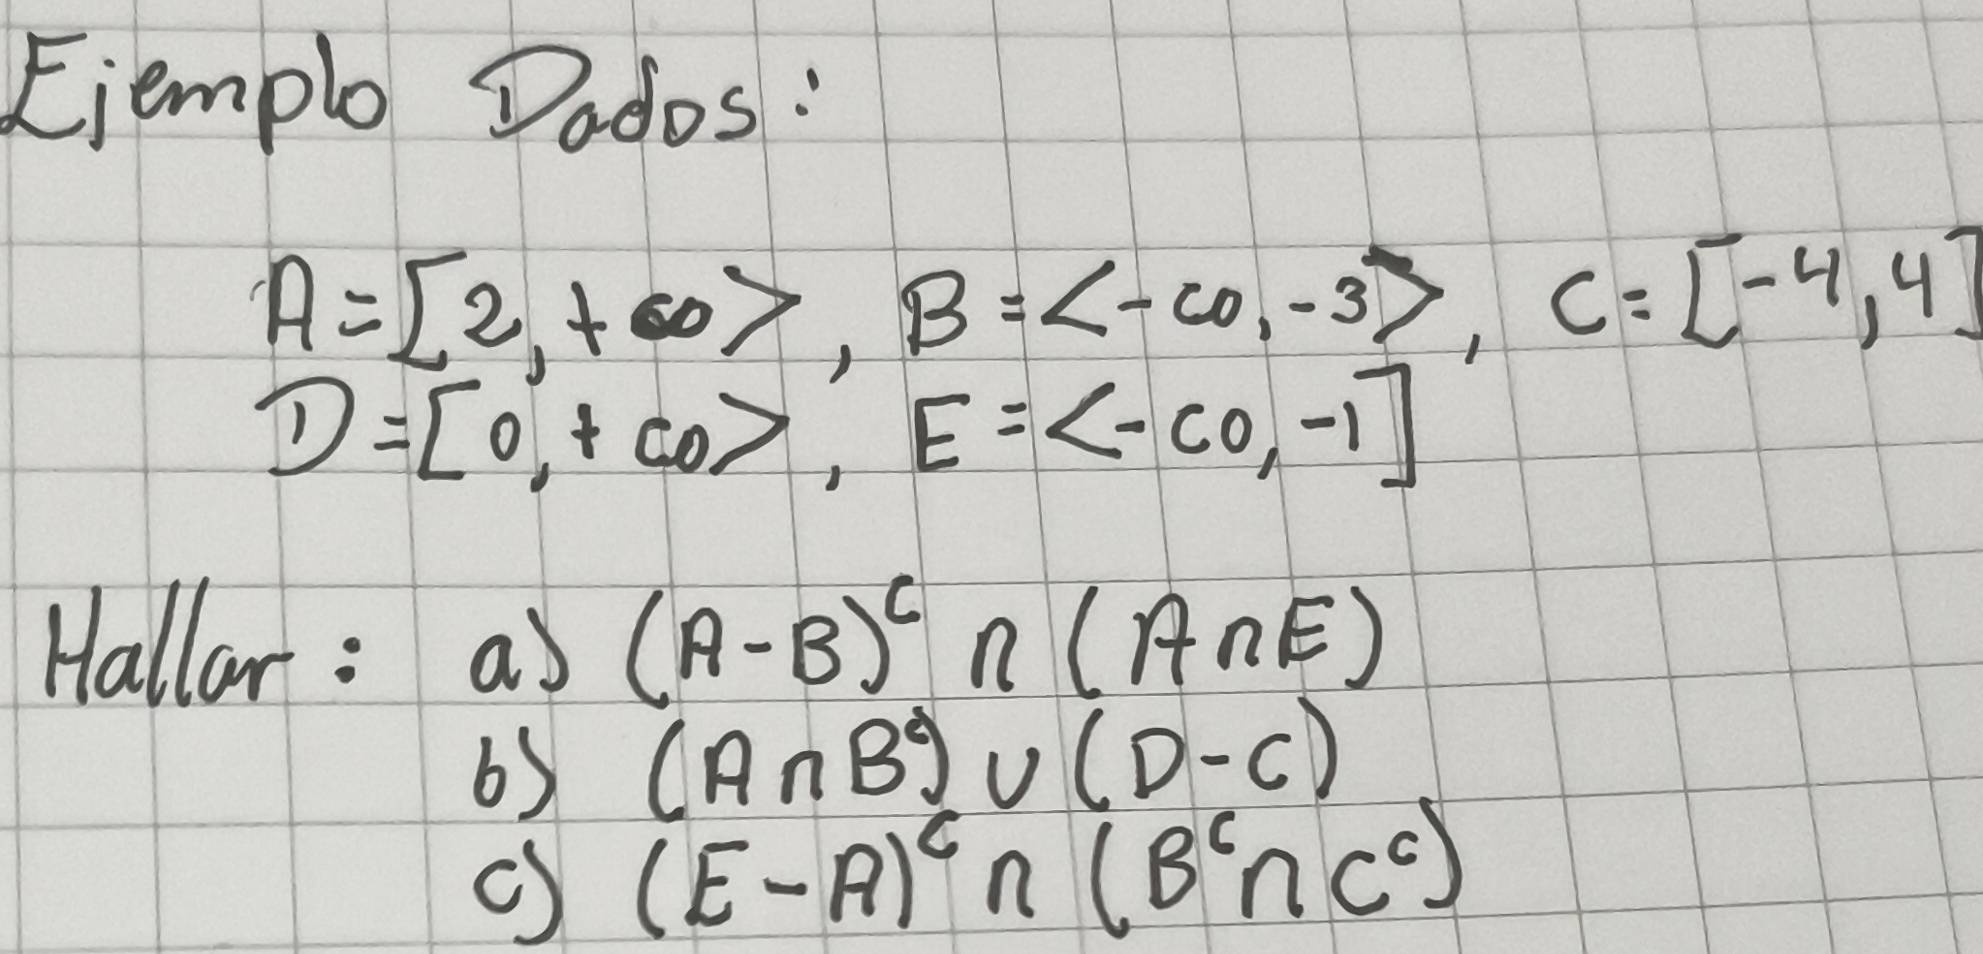 Ejemplo Dados:
A=[2,+∞>, B=<-∞,-3>, C=[-4,4]
D=[0,+∞>, E=<-∞,-1]
Hallar: a) (A-B)ᶜ ∩ (A∩E)
b) (A∩Bᶜ) ∪ (D-C)
c) (E-A)ᶜ ∩ (Bᶜ∩Cᶜ)